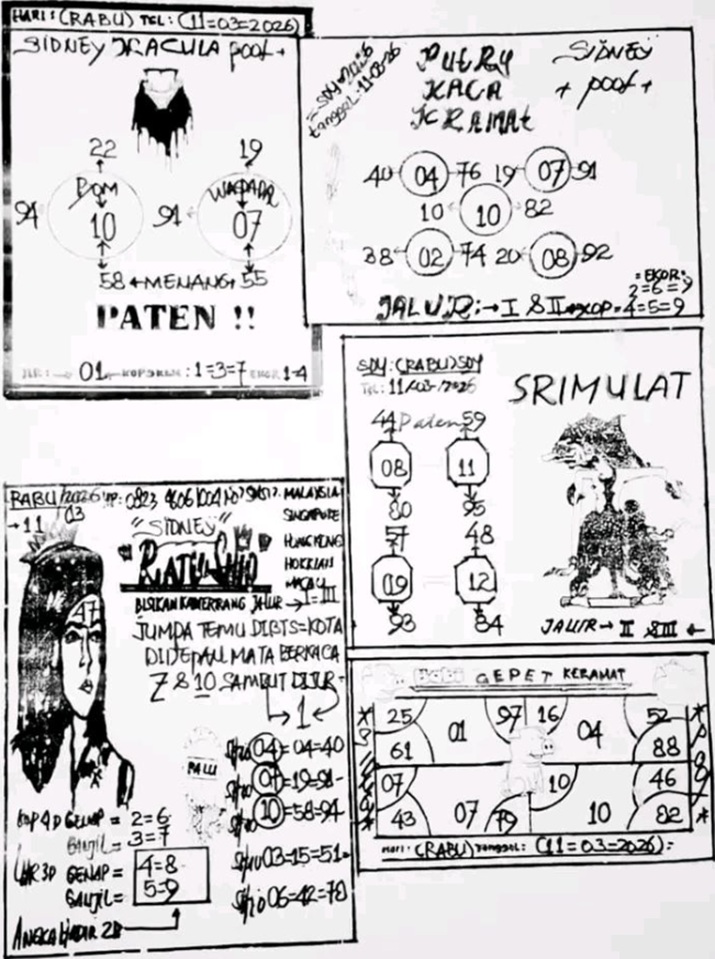 HARI: (RABU) TEL: (11=03=2026)
SIDNEY DRACULA pool +
22 19
BOM WASPADA
94 10 91 07
58 + MENANG + 55
PATEN !!
01 1=3=7 1=4
SDY=2026
tanggal: 11-03-26
PUTRY
KACA
KRAMAT
SIDNEY
+ pool +
40 04 76 19 07 91
10 10 82
38 02 74 20 08 92
=EKOR=
2=6=9
JALUR: → I & II → KOP=4=5=9
SDY: (RABU) SDY
TEL: 11/03/2026
SRIMULAT
44 Paten 59
08 11
80 95
57 48
09 12
93 84
JALUR → II & III ←
RABU/2026 HP: 0823
→11 03
MALAYSIA
SINGAPURE
HONGKONG
HOKKIAN
MACAU
"SIDNEY"
"RATU SHIO"
JALUR → I=III
47
JUMPA TEMU DIBIS=KOTA
DIDEPAN MATA BERKACA
7 & 10 SAMBUT
→ 1 ←
PALU
Shio 04=04=40
Shio 07=19=91-
Shio 10=58=94
Shio 03=15=51
Shio 06=42=78
KOP 4D GENAP = 2=6
GANJIL= 3=7
GENAP = 4=8
GANJIL= 5=9
ANGKA HADIR 2D
BABI GEPET KERAMAT
25 01 97 16 04 52
61 88
07 10 46
43 07 79 10 82
Hari: (RABU) Tanggal: (11=03=2026)=